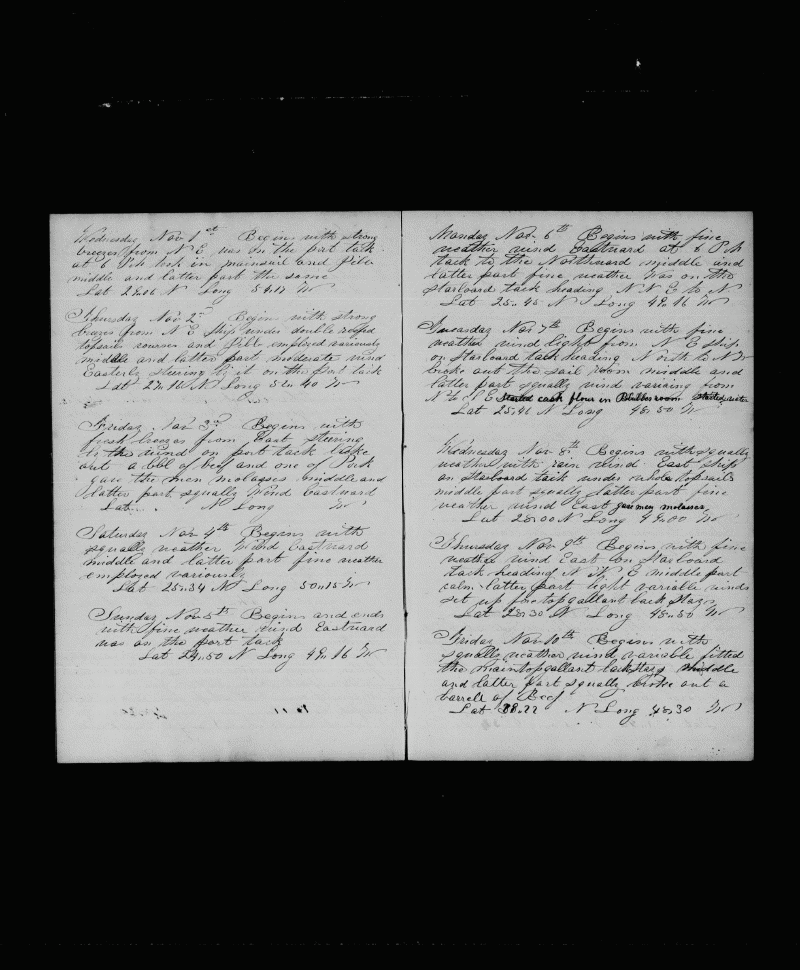 Wednesday Nov 1st Begins with strong
breezes from N E was on the port tack
at 6 P.M. took in mainsail and Jibe
middle and latter part the same
Lat 27"06 N Long 54"17 W
Thursday Nov 2d Begins with strong
breezes from N E Ship under double reefed
topsails courses and Jibe employed variously
middle and latter part moderate wind
Easterly steering by it on the port tack
Lat 27"16 N Long 52"40 W
Friday Nov 3rd Begins with
fresh breezes from East steering
by the wind on port tack broke
out a bbl of beef and one of Pork
gave the men molasses middle and
latter part squally Wind Eastward
Lat N Long W
Saturday Nov 4th Begins with
squally weather Wind Eastward
middle and latter part fine weather
employed variously
Lat 25"34 N Long 50"15 W
Sunday Nov 5th Begins and ends
with fine weather wind Eastward
was on the port tack
Lat 24"50 N Long 49"16 W
Monday Nov 6th Begins with fine
weather wind Eastward at 6 P M
tack to the Northward middle and
latter part fine weather was on the
starboard tack heading N N E to N
Lat 25"45 N Long 49"16 W
Tuesday Nov 7th Begins with fine
weather wind light from N E ship
on Starboard tack heading North to N W
broke out the sail room middle and
latter part squally wind varieing from
N to N E started cask flour in Blubber room started water
Lat 25"46 N Long 48"50 W
Wednesday Nov 8th Begins with squally
weather with rain wind East ship
on Starboard tack under whole topsails
middle part squally latter part fine
weather wind East gave men molasses
Lat 28"00 N Long 49"00 W
Thursday Nov 9th Begins with fine
weather wind East on Starboard
tack heading N N E middle part
calm latter part light variable winds
set up foretopgallant back Stays
Lat 28"30 N Long 48"50 W
Friday Nov 10th Begins with
squally weather wind variable fitted
the maintopgallant backstays middle
and latter part squally broke out a
barrell of Beef
Lat 28"22 N Long 48"30 W